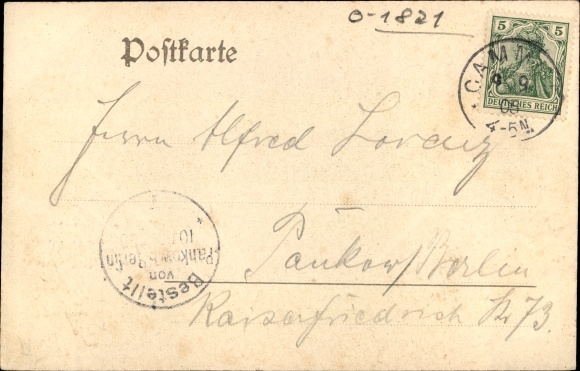 O-1821
Postkarte
5 5
DEUTSCHES REICH
CAM
9.
05
4-5N.
Herrn Alfred Lorenz
Pankow/Berlin
Kaiserfriedrich Str 73.
Bestellt
von
Pankow b. Berlin
10